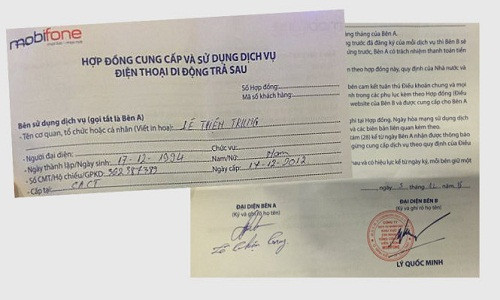 mobifone
HỢP ĐỒNG CUNG CẤP VÀ SỬ DỤNG DỊCH VỤ
ĐIỆN THOẠI DI ĐỘNG TRẢ SAU
Số Hợp đồng:
Mã số khách hàng:
Bên sử dụng dịch vụ (gọi tắt là Bên A)
- Tên cơ quan, tổ chức hoặc cá nhân (Viết in hoa): LÊ THIỆN TRUNG
- Người đại diện: Chức vụ:
- Ngày thành lập/Ngày sinh: 17-12-1994 Nam/Nữ: Nam
- Số CMT/Hộ chiếu/GPKD: Ngày cấp: 14-12-2012
- Cấp tại: CACT
tháng của Bên A.
trước đã đăng ký của mỗi dịch vụ thì Bên B sẽ
trước, Bên A có trách nhiệm thanh toán tiền
theo hợp đồng này, quy định của Nhà nước và
bên cam kết tuân thủ Điều khoản chung và mọi
trong các phụ lục kèm theo Hợp đồng (Điều
website của Bên B và được cung cấp cho Bên A
tại Hợp đồng. Ngày hòa mạng sử dụng dịch
và các biên bản liên quan kèm theo.
(28) kể từ ngày Bên A nhận được thông báo
ngừng cung cấp dịch vụ theo quy định của Điều
nhau và có hiệu lực kể từ ngày ký, mỗi bên giữ một
ngày 5 tháng
ĐẠI DIỆN BÊN A ĐẠI DIỆN BÊN B
(Ký và ghi rõ họ tên) (Ký và ghi rõ họ tên)
LÝ QUỐC MINH